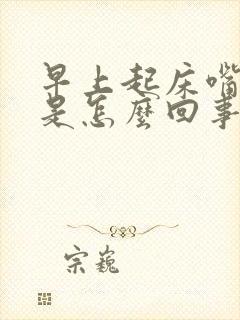 早上起床嘴
是怎麼回事
宗巍